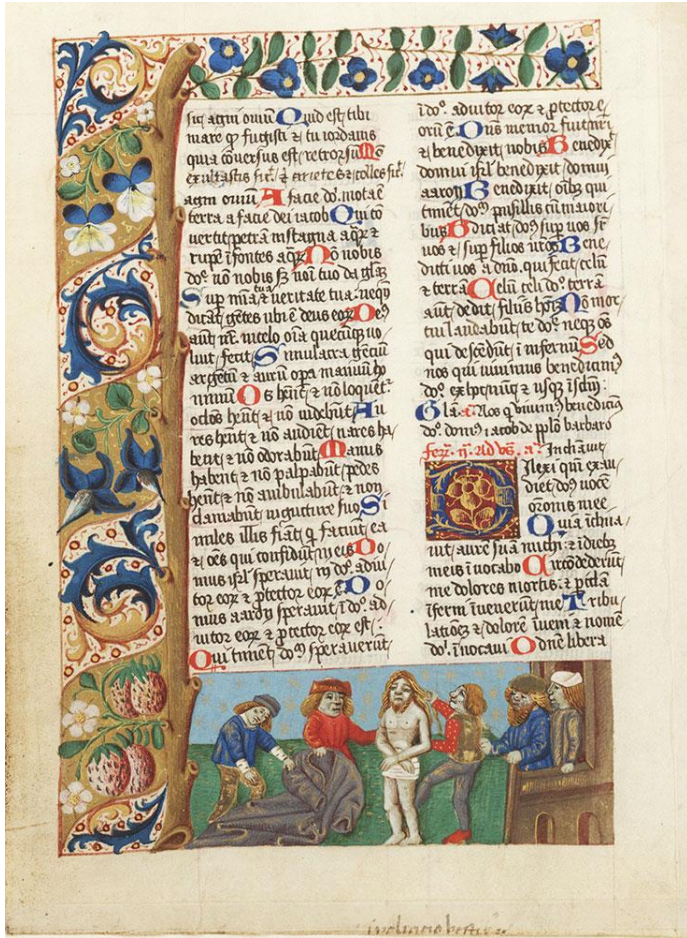 sic agni oviū Quid est tibi
mare qɔ fugisti & tu iordanis
quia cōversus est retrorsū Mō
exultastis sic̄ arietes & colles sic̄
agni oviū A facie do. mota ē
terra a facie dei iacob Qui cō
vertit petrā in stagna aqꝝ &
rupē ī fontes aqꝝ Nō nobis
do. non nobis sꝫ nōi tuo da glā
Sup mīa tua & veritate tua neqn̄
dicāt gētes ubi ē deus eoꝝ De9
aut nr̄ in celo oīa quecūqꝫ vo
luit fecit Simulacra gēciū
argētū & aurū opa manuū ho
minū Os hent & nō loquet̄
oclos hent & nō videbūt Au
res hent & nō audient nares ha
bent & nō odorabūt Manus
habent & nō palpabūt pedes
hent & nō ambulabūt & non
clamabūt in gutture suo Si
miles illis fiāt q̄ faciūt ea
& oēs qui confidūt in eis Do
mus isrl speravit in do. adiu
tor eoꝝ & ptector eoꝝ Do
mus aaron speravit ī do. ad
iutor eoꝝ & ptector eoꝝ est
Qui timēt do9 speraverūt
ī do. adiutor eoꝝ & ptector e
orū ē Dn̄s memor fuit nr̄i
& benedixit nobis Benedix̄
domui isrl benedixit domui
aaron Benedixit oībꝫ qui
timēt do9 pusillis cū maiori
bus Adiciat do9 sup vos sr̄
vos & sup filios vr̄os Bene
dicti vos a dn̄o qui fecit celū
& terrā Celū celi do. terrā
aut dedit filiis hoīm Nō mor
tui laudabūt te do. neqꝫ oēs
qui descēdūt ī infernū Sed
nos qui vivimus benedicim9
do. ex hoc nūc & usqꝫ ī sclm̄
Glā. a. Nos q̄ vivim9 benedicim9
do. dom9 iacob de pplo barbaro
fer. ij. ad vs. a. Inclinavit
Dilexi qm̄ exau
diet do9 vocē
orōnis mee
Quia īclīna
vit aurē suā michi & ī dieb9
meis īvocabo Circūdederūt
me dolores mortis & picla
īferni īvenerūt me Tribu
lationē & dolorē īveni & nomē
do. īnocavi O dn̄e libera